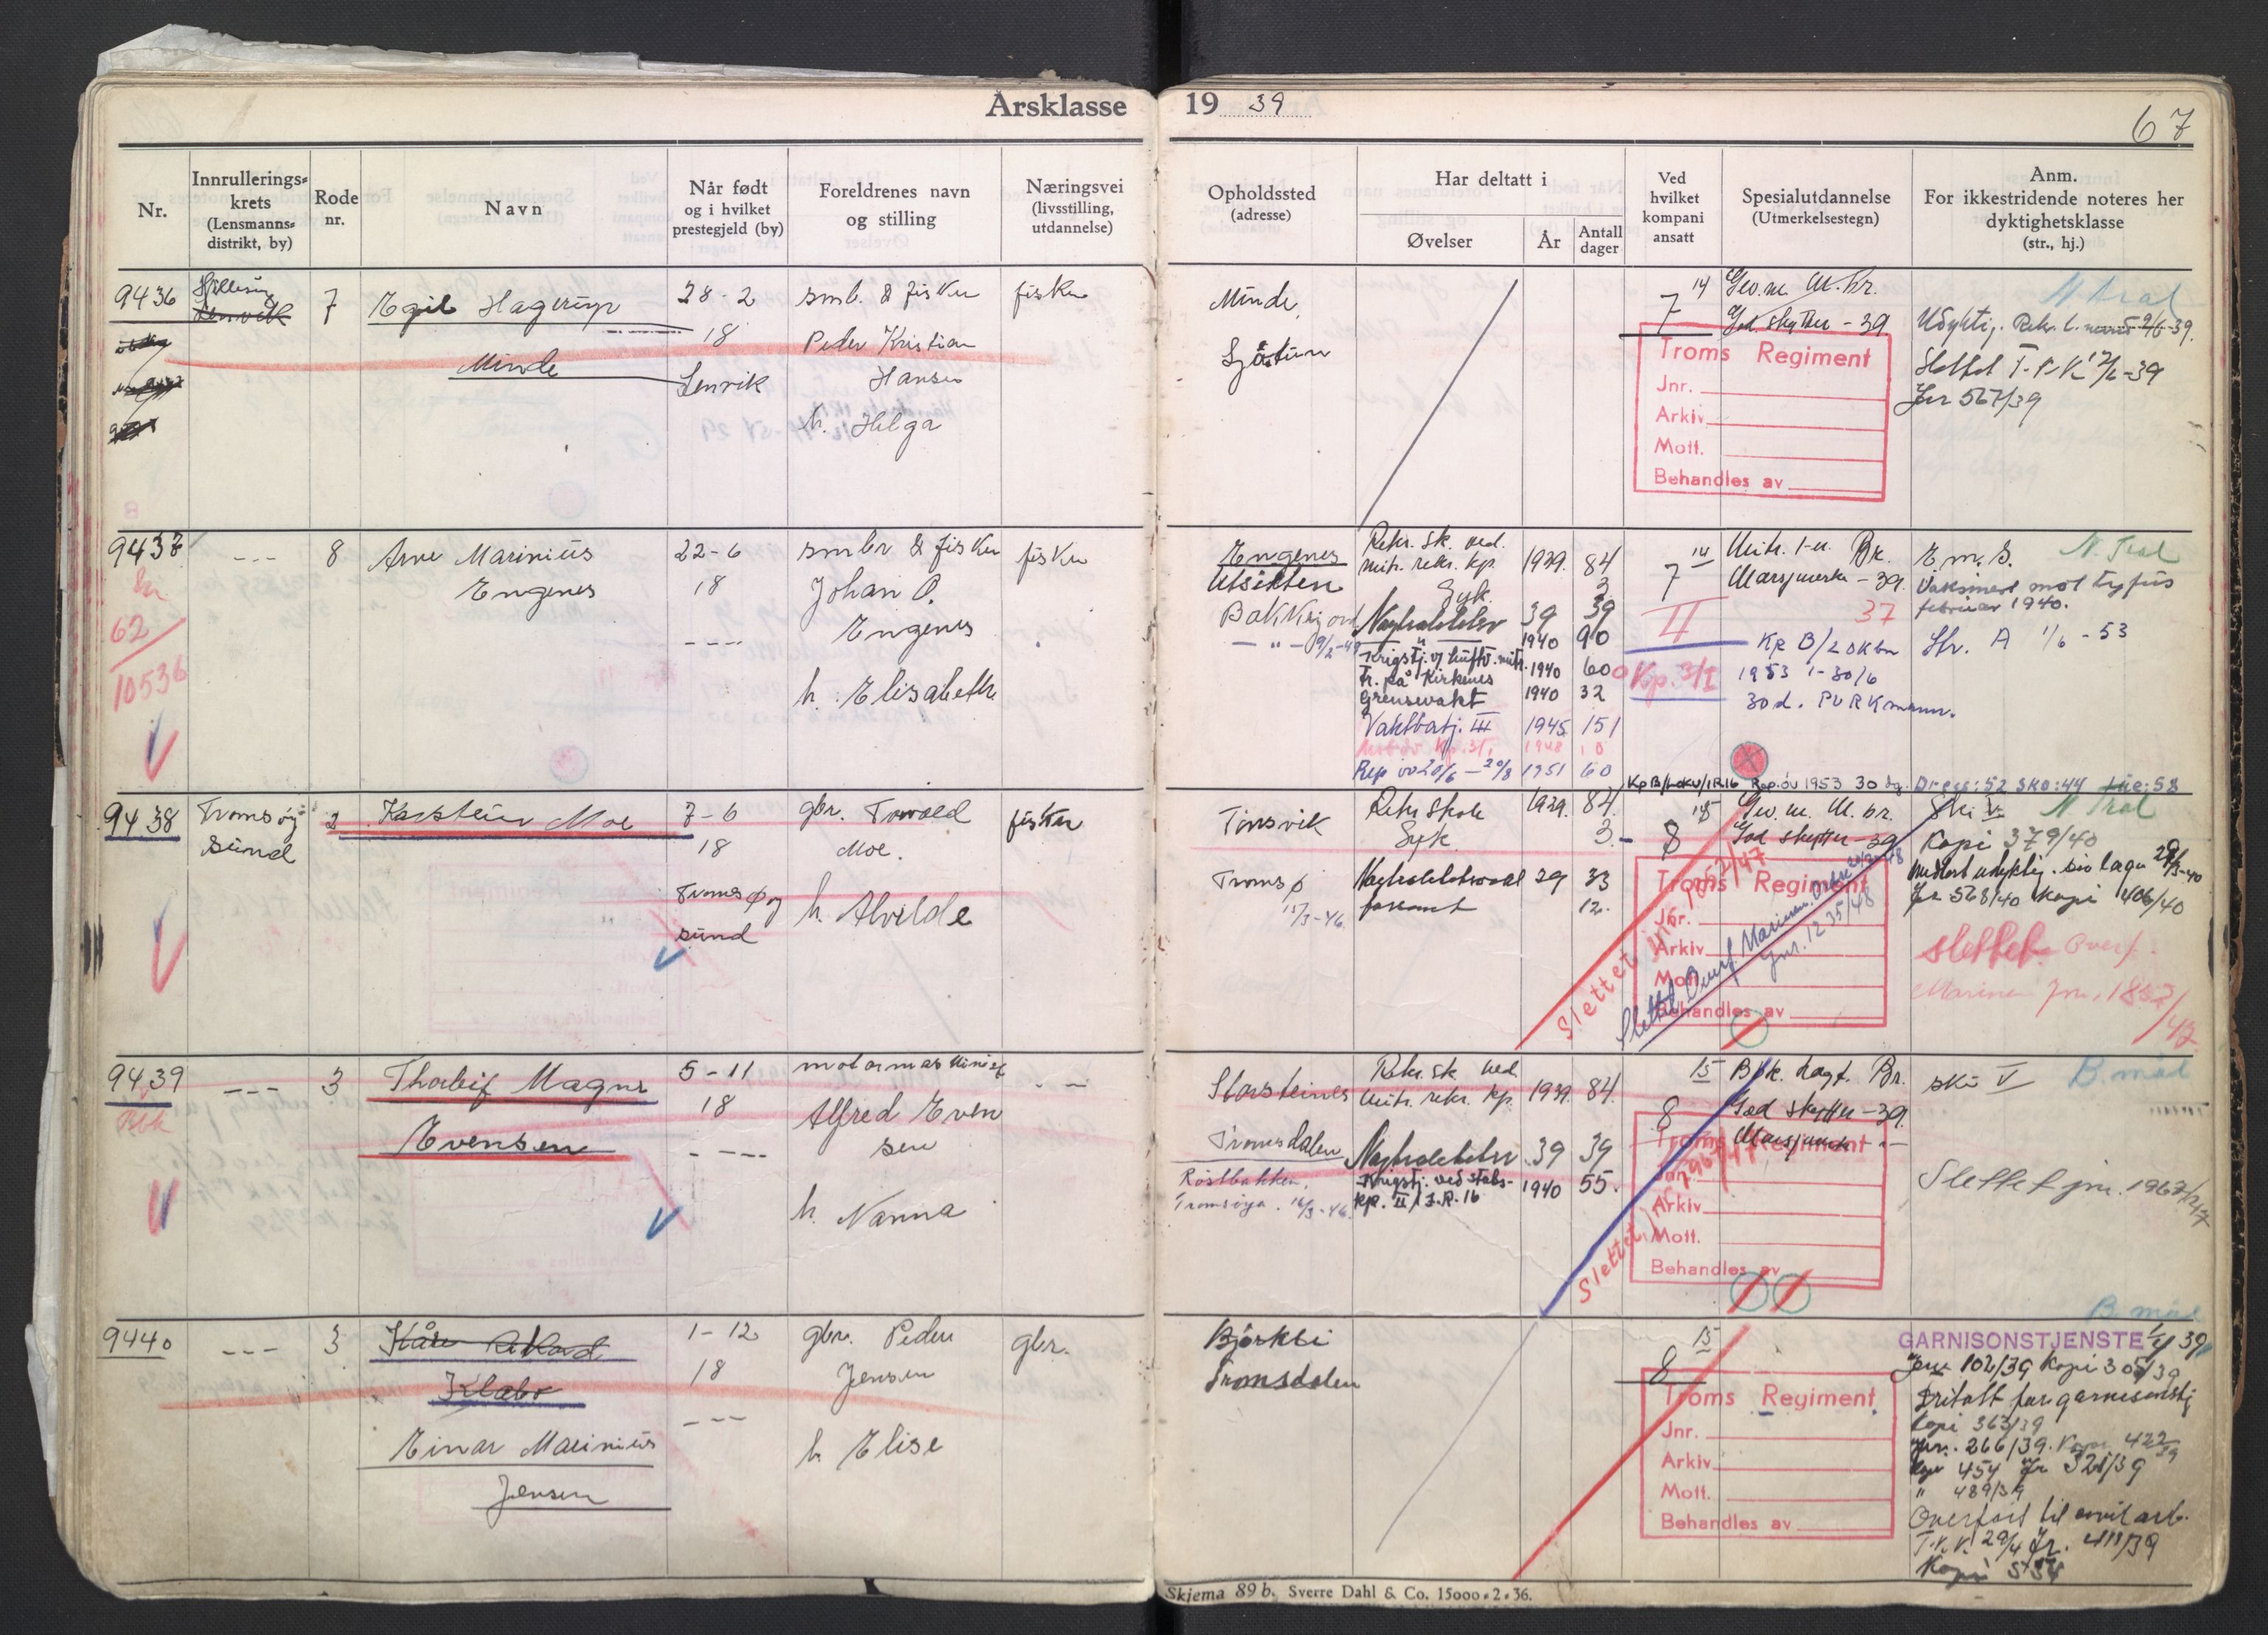 Årsklasse 19 39
67
Nr.
Innrullerings-
krets
(Lensmanns-
distrikt, by)
Rode
nr.
Navn
Når født
og i hvilket
prestegjeld (by)
Foreldrenes navn
og stilling
Næringsvei
(livsstilling,
utdannelse)
Opholdssted
(adresse)
Har deltatt i
Øvelser
År
Antall
dager
Ved
hvilket
kompani
ansatt
Spesialutdannelse
(Utmerkelsestegn)
Anm.
For ikkestridende noteres her
dyktighetsklasse
(str., hj.)
9436
Hillesøy
Lenvik
7
Egil Hagerup
Minde
28-2
18
Lenvik
smb. & fisker
Peder Kristian
Hansen
h. Helga
fisker
Minde,
14
7
Gev.m. M.br.
God skytter - 39
Troms Regiment
Jnr.
Arkiv
Mott.
Behandles av
N Tral
Slettet T.P.K 12/6-39
Jnr 567/39
9437
62
10536
---
8
Arne Marinius
Engenes
22-6
18
----
smbr & fisker
Johan O.
Engenes
h. Elisabeth
fisker
Engenes
Utsikten
- " - 9/2-49
Rekr. sk. ved.
mitr. rekr. kp. 1939. 84
Syk. 3
Nøytralitetsv 39 39
" 1940 90
Tr. på Kirkenes 1940 60
Grensevakt 1940 32
Vaktbatj. III 1945 151
Mob.øv Kp. 3/1 1948 10
Rep øv 20/6 - 20/8 1951 60
14
7
II
Kp. 3/I
Mitr. 1-m. Br.
Marsjmerke - 39.
37
Kp B/2 OKbn
1953 1-30/6
30 d. PVRKmann.
Kp B/ Rep.øv 1953 30 dg.
E m. G. N. Tral
Vaksinert mot tyfus
februar 1940.
Str. A 1/6 - 53
Dress: 52 Sko: 44 Lue: 58
9438
Tromsøy-
sund
2
Karstein Moe
7-6
18
Tromsøy
sund
gbr. Torvald
Moe.
h. Alvilde
fisker
Tonsvik
Tromsø
15/3-46
Rekr skole 1939. 84.
Syk 3
Nøytralitetsvakt 39 33
12.
15
8
Gev. m. M. br.
God skytter - 39
Troms Regiment
Jnr.
Arkiv
Mott.
Behandles av
Slettet Overf. Marinen.
Jnr. 1235/48
Ski V. N Tral
Kopi 379/40
Jnr 568/40 Kopi 406/40
slettet Overf.
Marinen Jnr. 1852/47
9439
---
3
Thorleif Magne
Evensen
5-11
18
----
motormaskinist
Alfred Even
sen
h. Nanna
--
Storsteines
Tromsdalen
Røstbakken,
Tromsøya. 16/3-46.
Rekr. sk ved
mitr. rekr. kp. 1939. 84.
Nøytralitetsv 39 39
Krigstj. ved stabs-
kp. II/I.R. 16 1940 55.
15
8
God skytter - 39.
Marsjmerke - " -
Troms Regiment
Jnr.
Arkiv
Mott.
Behandles av
ski V B. mål
Slettet jnr. 1967/47
9440
---
3
Kåre Rikard
Klabo
Einar Marinius
Jensen
1-12
18
---
gbr. Peder
Jensen
h Elise
gbr.
Tromsdalen
15
8
Troms Regiment
Jnr.
Arkiv
Mott.
Behandles av
B. mål
GARNISONSTJENSTE
Jnr 102/39 Kopi 305/39
Fritatt for garnisonstj
Kopi 363/39
Jnr. 266/39. Kopi 422/39
Kopi 454 Jnr 321/39
" 489/39
Overført til sivilarb.
T.K.K. 29/4 Jr. 411/39
Kopi 534
Skjema 89 b. Sverre Dahl & Co. 15000-2-36.